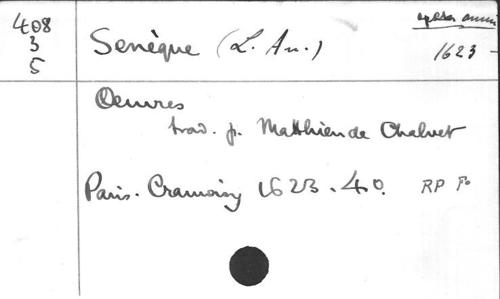 408
3
5
Senèque (L. An.)
opera omnia
1623 -
Oeuvres
trad. p. Matthieu de Chalvet
Paris. Cramoisy 1623. 4o. RP Fo